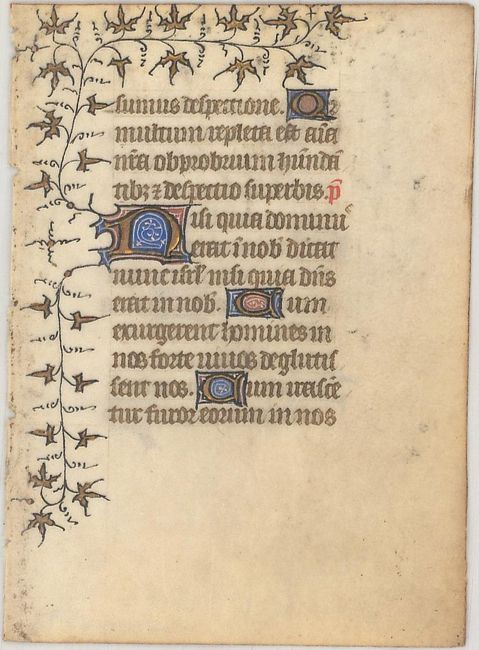 sumus despectione. Qr
multum repleta est aīa
nr̄a obprobrium hundā
tibꝫ ⁊ despectio superbis. p̄
Nisi quia dominuˢ
erat ī nob̄ dicat
nunc isrl̄ nisi quia dn̄s
erat in nob̄. Cum
exurgerent homines in
nos forte viuos deglutis
sent nos. Cum irascē
tur furor eorum in nos